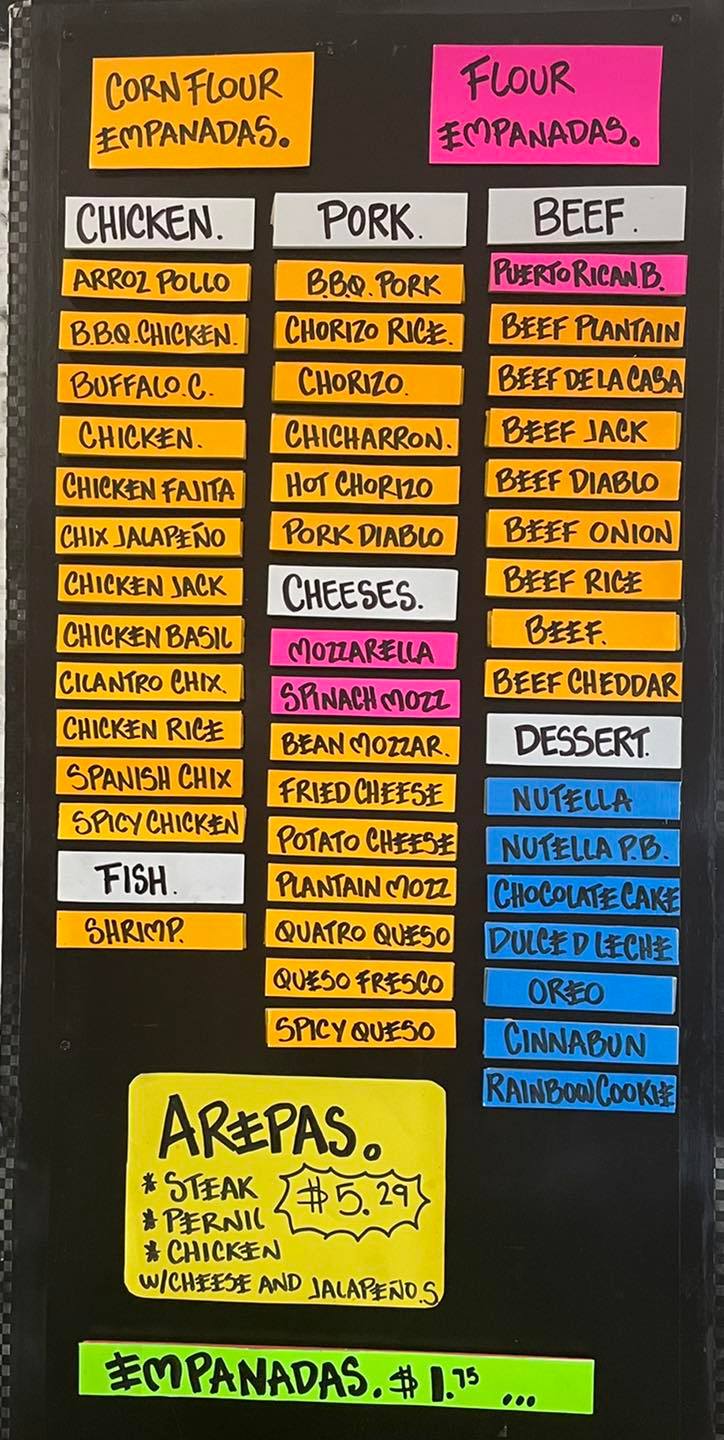 CORN FLOUR
EMPANADAS.
FLOUR
EMPANADAS.
CHICKEN.
ARROZ POLLO
B.B.Q. CHICKEN.
BUFFALO. C.
CHICKEN.
CHICKEN FAJITA
CHIX JALAPEÑO
CHICKEN JACK
CHICKEN BASIL
CILANTRO CHIX.
CHICKEN RICE
SPANISH CHIX
SPICY CHICKEN
FISH.
SHRIMP.
PORK.
B.B.Q. PORK
CHORIZO RICE.
CHORIZO.
CHICHARRON.
HOT CHORIZO
PORK DIABLO
CHEESES.
MOZZARELLA
SPINACH MOZZ
BEAN MOZZAR.
FRIED CHEESE
POTATO CHEESE
PLANTAIN MOZZ
QUATRO QUESO
QUESO FRESCO
SPICY QUESO
BEEF.
PUERTO RICAN B.
BEEF PLANTAIN
BEEF DE LA CASA
BEEF JACK
BEEF DIABLO
BEEF ONION
BEEF RICE
BEEF.
BEEF CHEDDAR
DESSERT.
NUTELLA
NUTELLA P.B.
CHOCOLATE CAKE
DULCE D LECHE
OREO
CINNABUN
RAINBOW COOKIE
AREPAS.
* STEAK
* PERNIL
* CHICKEN
$5.29
W/CHEESE AND JALAPEÑO.S
EMPANADAS. $1.75 ...